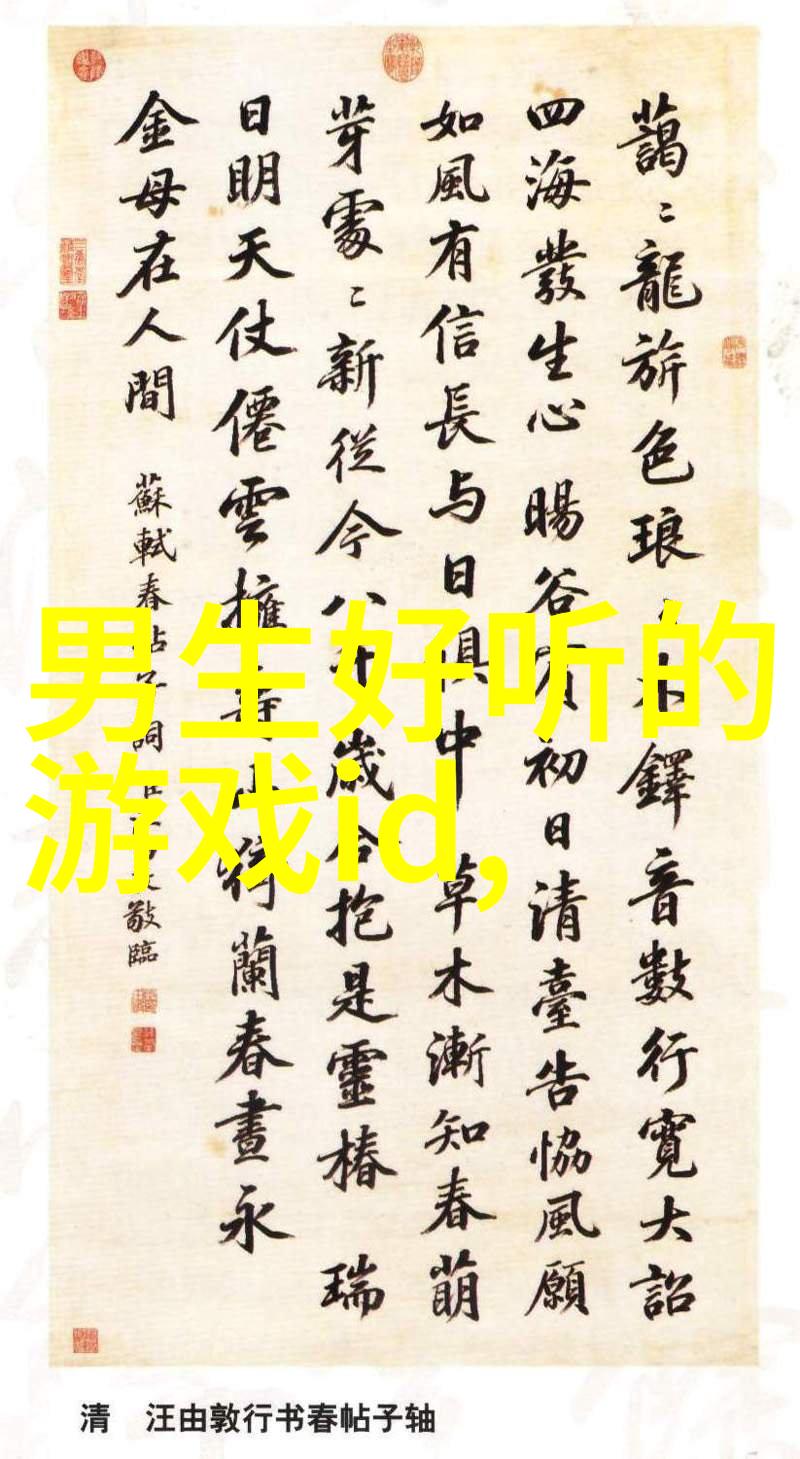 藹〻龍旂色琅〻木鐸音數行寬大詔
四海發生心 暘谷賓初日清臺告協風願
如風有信長与日俱中 草木漸知春萌
芽處〻新從今八千歲合抱是靈椿 瑞
日明天仗僊雲擁壽山猗蘭春晝永
金母在人間
蘇軾春帖子詞臣汪由敦敬臨
男生好听的
游戏id,
清 汪由敦行书春帖子轴